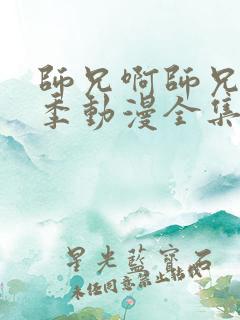 師兄啊師兄
季動漫全集
星光藍寶石
未經同意禁止轉載